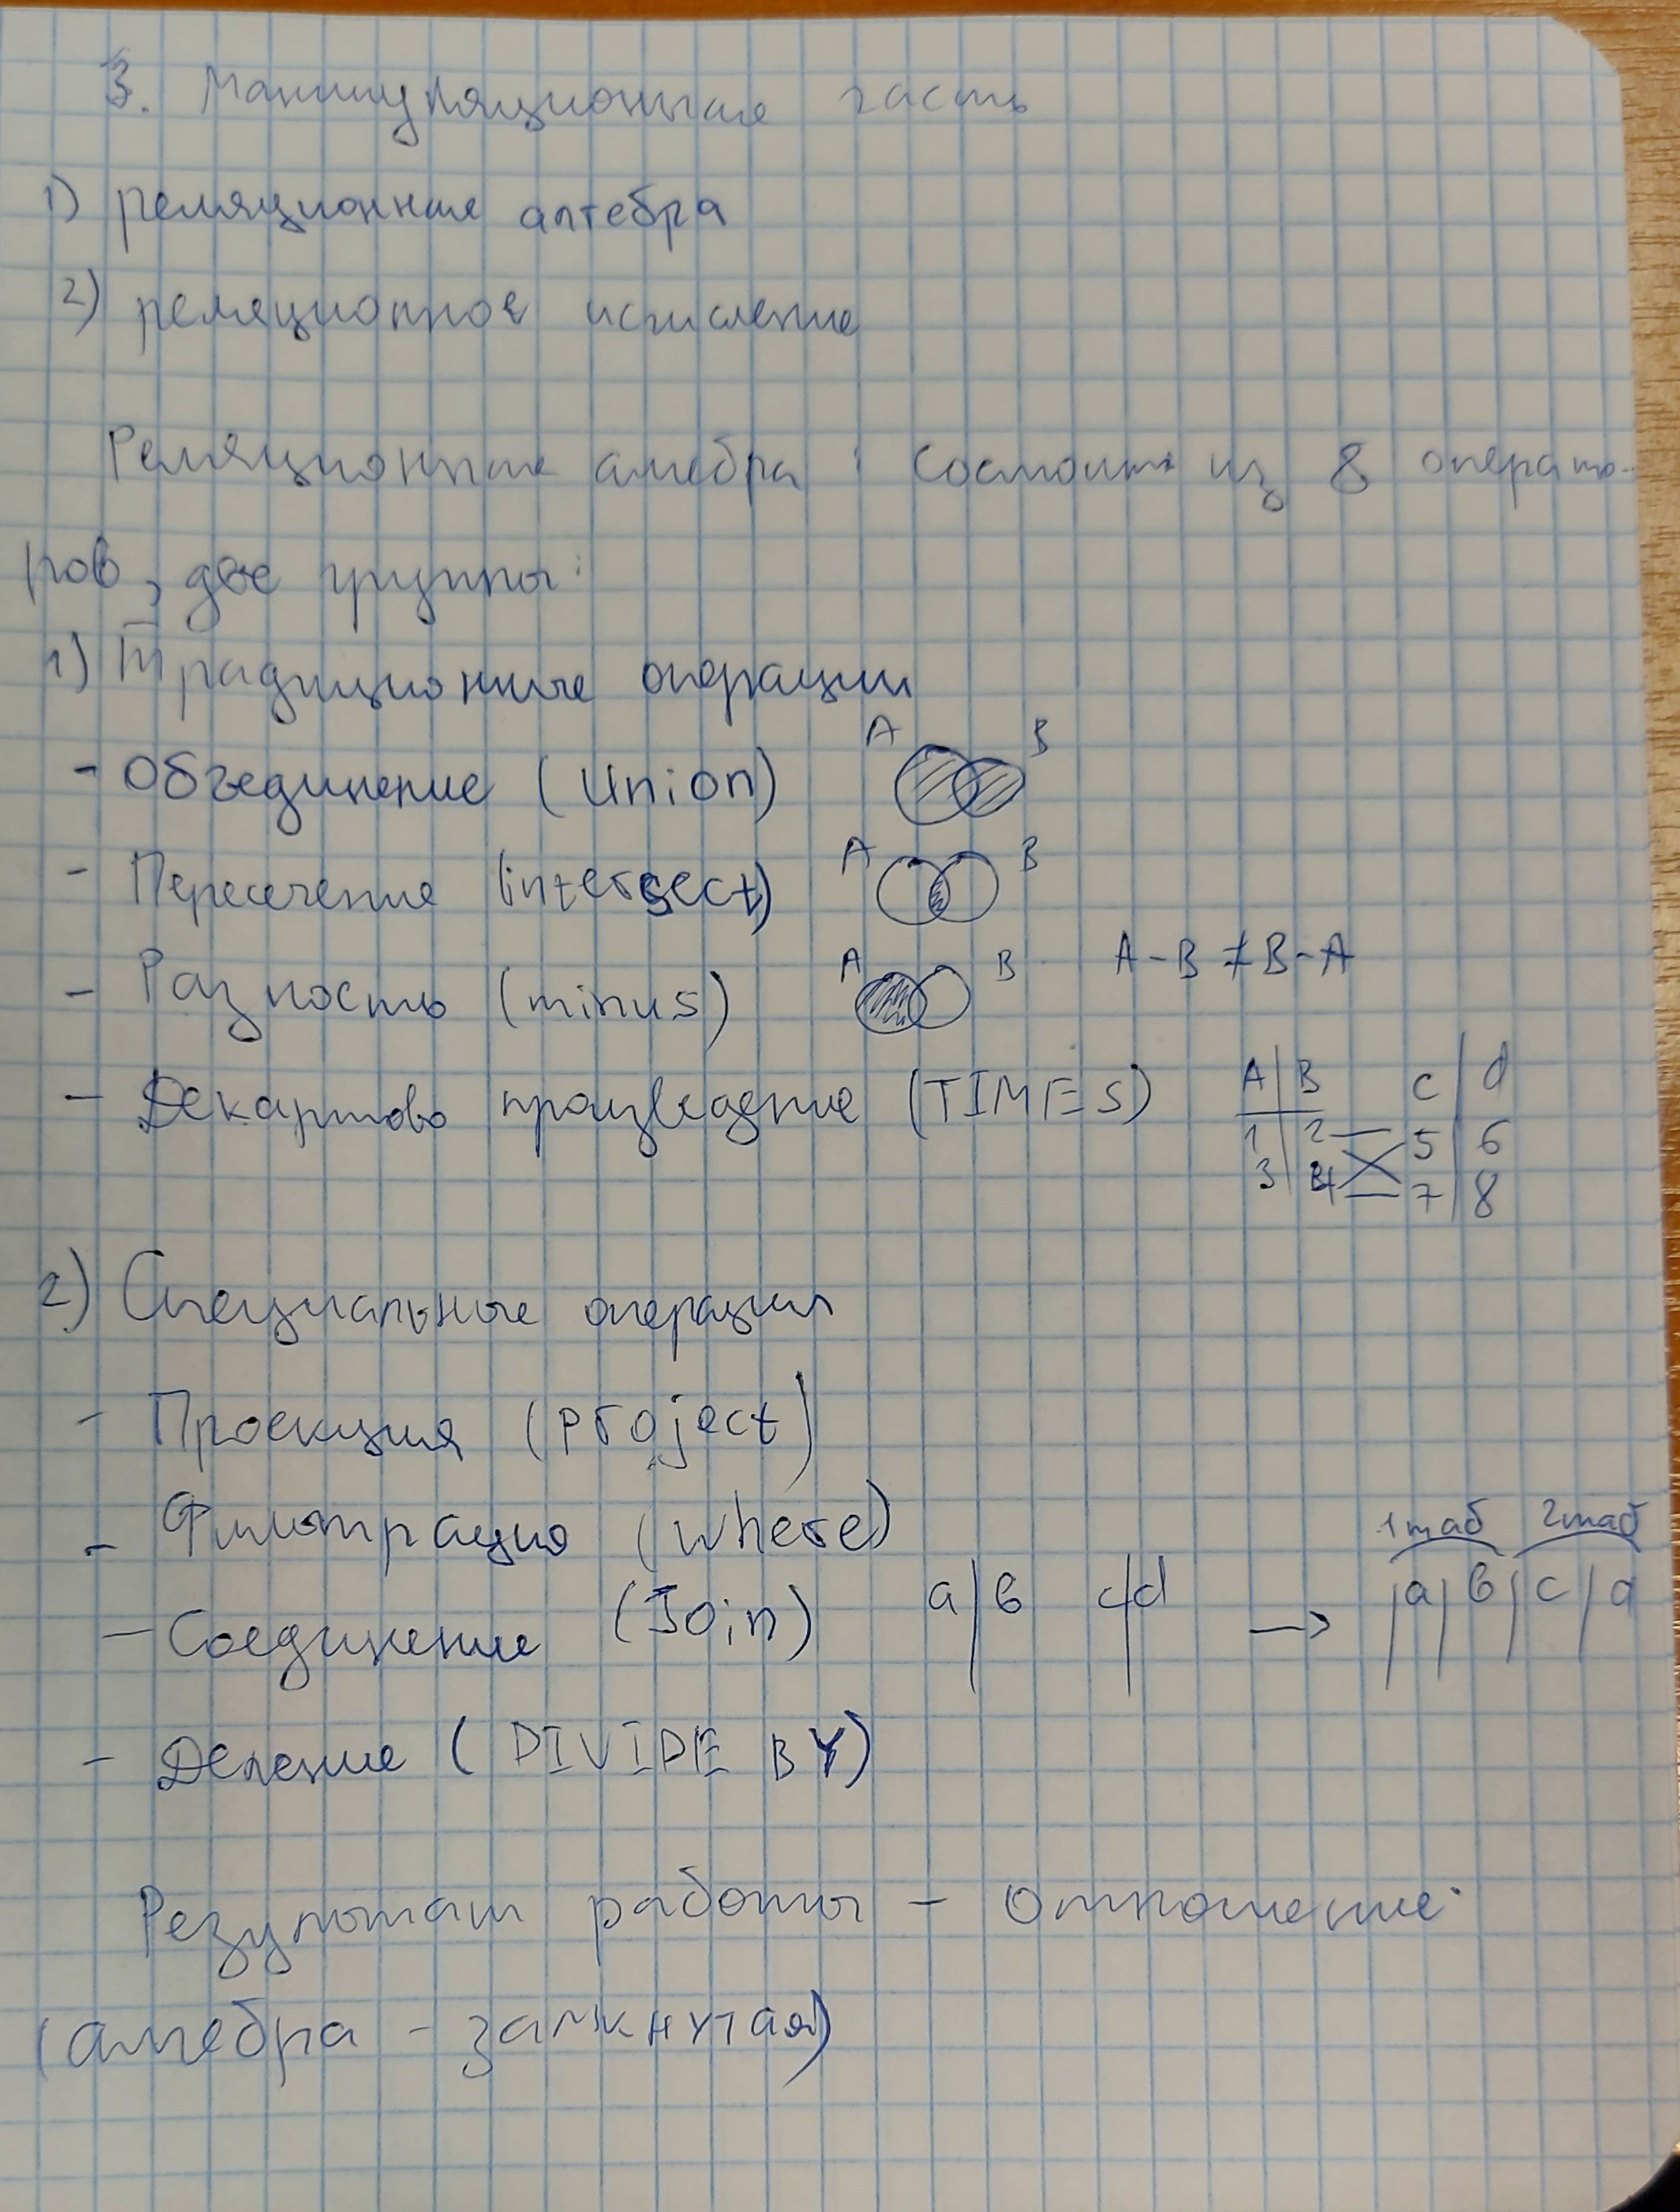 3. Манипуляционная часть
1) реляционная алгебра
2) реляционное исчисление
Реляционная алгебра : состоит из 8 операто-
ров, две группы:
1) Традиционные операции
- Объединение (Union) A B
- Пересечение (intersect) A B
- Разность (minus) A B A-B ≠ B-A
- Декартово произведение (TIMES) A B c d
1 2 5 6
3 4 7 8
2) Специальные операции
- Проекция (project)
- Фильтрация (where) 1 таб 2 таб
- Соединение (Join) a|в c|d → |a|в|c|d
- Деление (DIVIDE BY)
Результат работы - отношение
(алгебра - замкнутая)